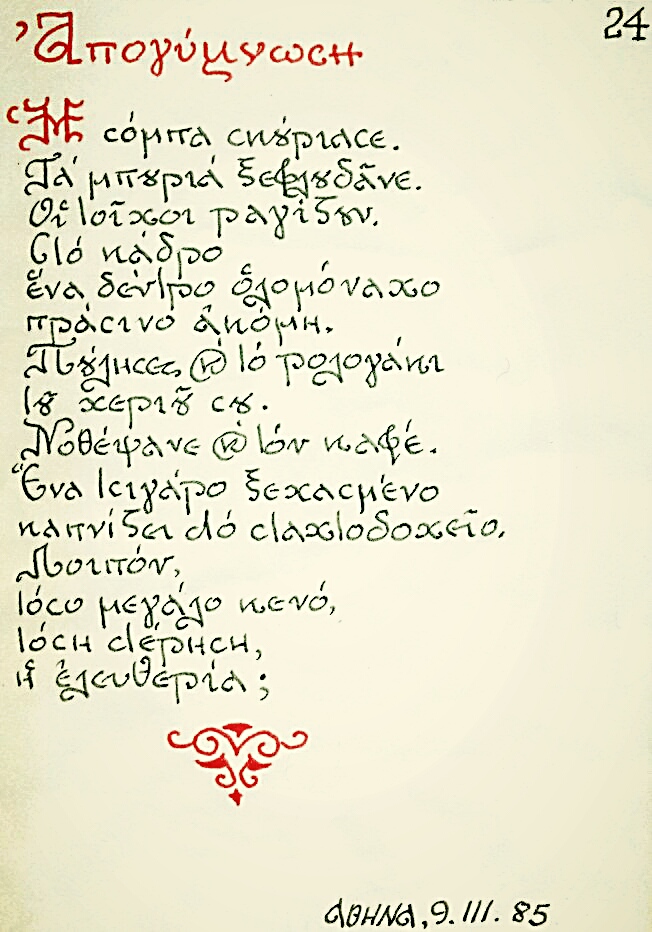 24
Ἀπογύμνωση
Ἡ σόμπα σκούριασε.
Τά μπουριά ξεφλουδᾶνε.
Οἱ τοῖχοι ραγίζουν.
Στό κάδρο
ἕνα δέντρο ὁλομόναχο
πράσινο ἀκόμη.
Πούλησες καί τό ρολογάκι
τοῦ χεριοῦ σου.
Νοθέψανε καί τόν καφέ.
Ἕνα τσιγάρο ξεχασμένο
καπνίζει στό σταχτοδοχεῖο.
Λοιπόν,
τόσο μεγάλο κενό,
τόση στέρηση,
ἡ ἐλευθερία;
ΑΘΗΝΑ, 9. III. 85